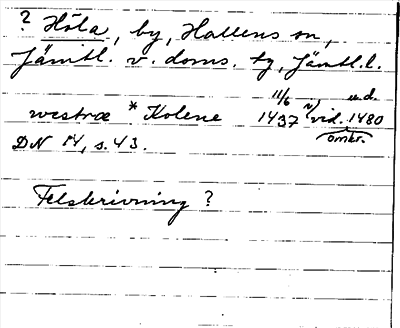 ? Höla, by, Hallens sn,
Jämtl. v. doms. tg, Jämtl. l.
11/6 u.d.
westræ * Kolene 1437 vid. 1480
DN 14, s. 43. omkr.
Felskrivning ?